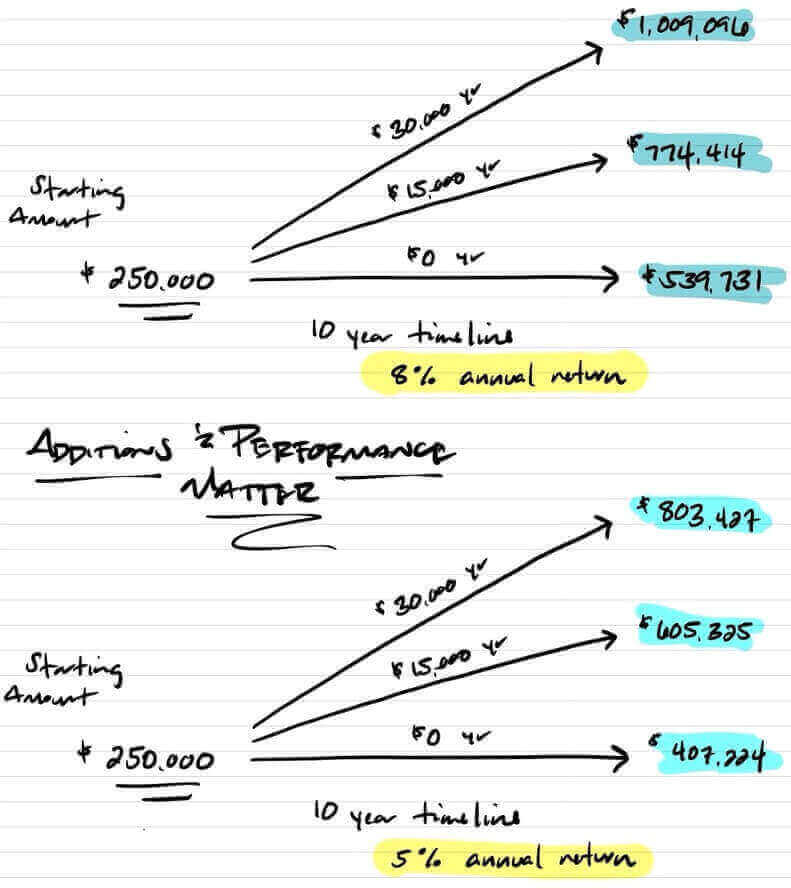 $1,009,096
$ 30,000 yr
$774,414
$15,000 yr
Starting
Amount
$0 yr
$ 250.000
$539,731
10 year timeline
8% annual return
ADDITIONS & PERFORMANCE
MATTER
$ 803,427
$ 30,000 yr
$605,325
$15,000 yr
Starting
Amount
$0 yr
$ 250.000
$ 407,224
10 year timeline
5% annual return